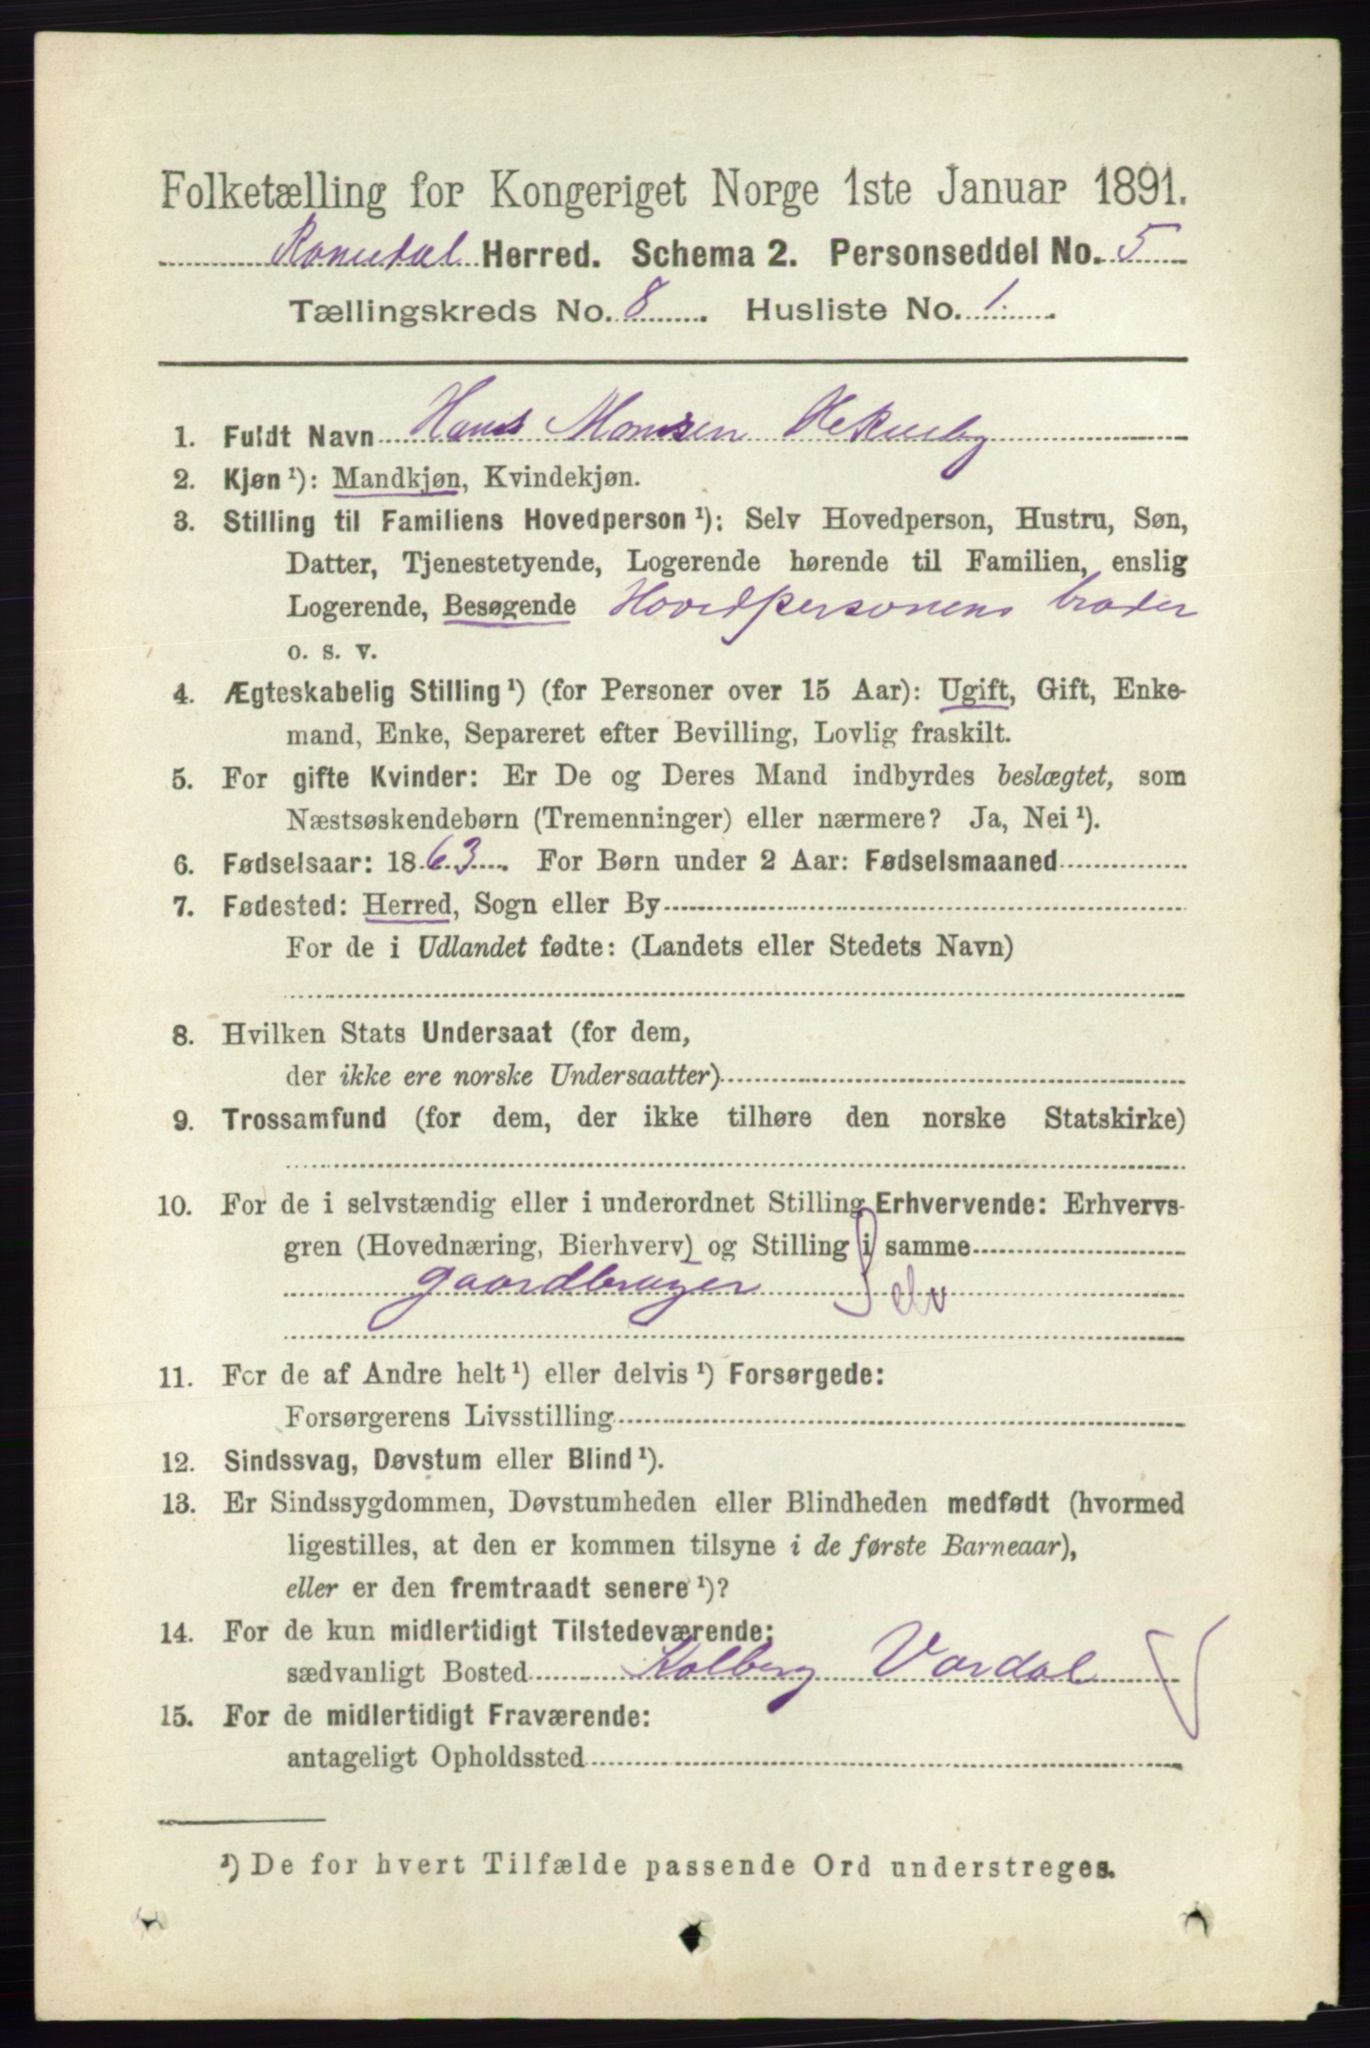 Folketælling for Kongeriget Norge 1ste Januar 1891.
Romedal Herred. Schema 2. Personseddel No. 5
Tællingskreds No. 8. Husliste No. 1.
1. Fuldt Navn Hans Monsen Hekneby
2. Kjøn¹): Mandkjøn, Kvindekjøn.
3. Stilling til Familiens Hovedperson¹): Selv Hovedperson, Hustru, Søn,
Datter, Tjenestetyende, Logerende hørende til Familien, enslig
Logerende, Besøgende Hovedpersonens broder
o. s. v.
4. Ægteskabelig Stilling¹) (for Personer over 15 Aar): Ugift, Gift, Enke-
mand, Enke, Separeret efter Bevilling, Lovlig fraskilt.
5. For gifte Kvinder: Er De og Deres Mand indbyrdes beslægtet, som
Næstsøskendebørn (Tremenninger) eller nærmere? Ja, Nei¹).
6. Fødselsaar: 1863. For Børn under 2 Aar: Fødselsmaaned
7. Fødested: Herred, Sogn eller By
For de i Udlandet fødte: (Landets eller Stedets Navn)
8. Hvilken Stats Undersaat (for dem,
der ikke ere norske Undersaatter)
9. Trossamfund (for dem, der ikke tilhøre den norske Statskirke)
10. For de i selvstændig eller i underordnet Stilling Erhvervende: Erhvervs-
gren (Hovednæring, Bierhverv) og Stilling i samme
gaardbruger Selv
11. For de af Andre helt¹) eller delvis¹) Forsørgede:
Forsørgerens Livsstilling
12. Sindssvag, Døvstum eller Blind¹).
13. Er Sindssygdommen, Døvstumheden eller Blindheden medfødt (hvormed
ligestilles, at den er kommen tilsyne i de første Barneaar),
eller er den fremtraadt senere¹)?
14. For de kun midlertidigt Tilstedeværende:
sædvanligt Bosted Kolberg Vardal
15. For de midlertidigt Fraværende:
antageligt Opholdssted
¹) De for hvert Tilfælde passende Ord understreges.